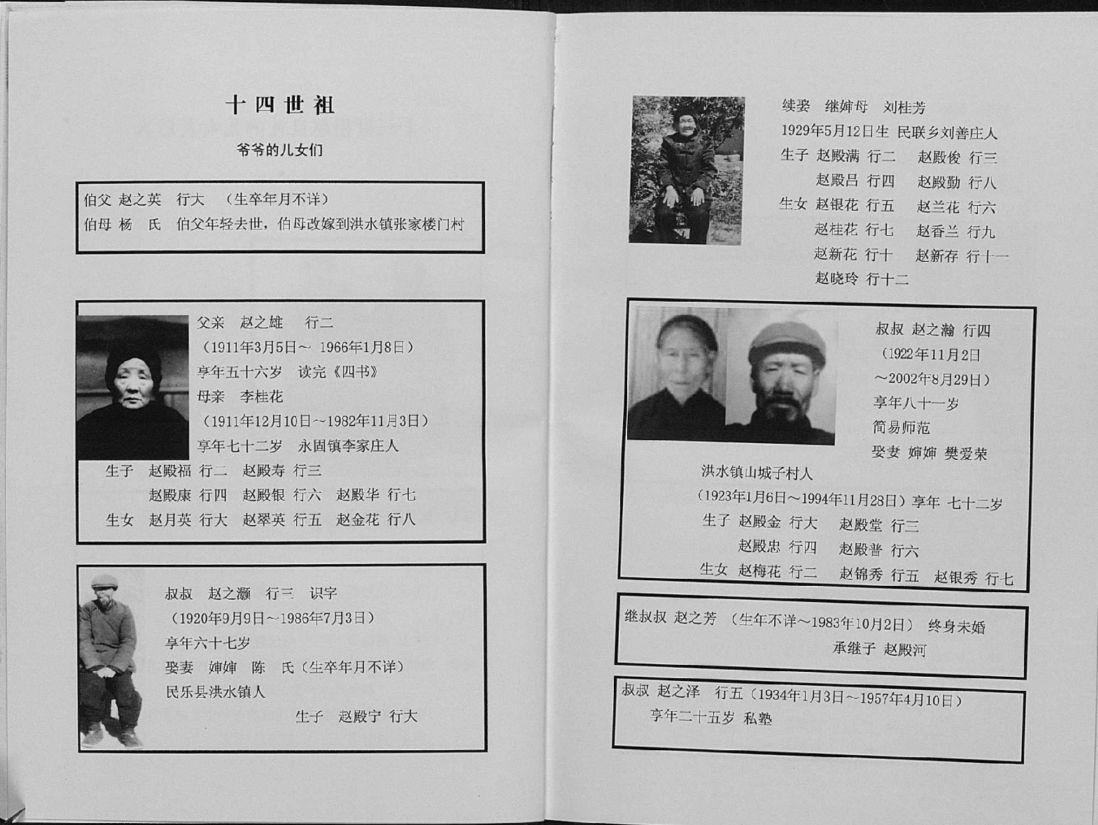 十四世祖
爷爷的儿女们
伯父 赵之英 行大 （生卒年月不详）
伯母 杨 氏 伯父年轻去世，伯母改嫁到洪水镇张家楼门村
父亲 赵之雄 行二
（1911年3月5日～ 1966年1月8日）
享年五十六岁 读完《四书》
母亲 李桂花
（1911年12月10日～1982年11月3日）
享年七十二岁 永固镇李家庄人
生子 赵殿福 行二 赵殿寿 行三
赵殿康 行四 赵殿银 行六 赵殿华 行七
生女 赵月英 行大 赵翠英 行五 赵金花 行八
叔叔 赵之灏 行三 识字
（1920年9月9日～1986年7月3日）
享年六十七岁
娶妻 婶婶 陈 氏（生卒年月不详）
民乐县洪水镇人
生子 赵殿宁 行大
续娶 继婶母 刘桂芳
1929年5月12日生 民联乡刘善庄人
生子 赵殿满 行二 赵殿俊 行三
赵殿吕 行四 赵殿勤 行八
生女 赵银花 行五 赵兰花 行六
赵桂花 行七 赵香兰 行九
赵新花 行十 赵新存 行十一
赵晓玲 行十二
叔叔 赵之瀚 行四
（1922年11月2日
～2002年8月29日）
享年八十一岁
简易师范
娶妻 婶婶 樊爱荣
洪水镇山城子村人
（1923年1月6日～1994年11月28日）享年 七十二岁
生子 赵殿金 行大 赵殿堂 行三
赵殿忠 行四 赵殿普 行六
生女 赵梅花 行二 赵锦秀 行五 赵银秀 行七
继叔叔 赵之芳 （生年不详～1983年10月2日） 终身未婚
承继子 赵殿河
叔叔 赵之泽 行五（1934年1月3日～1957年4月10日）
享年二十五岁 私塾